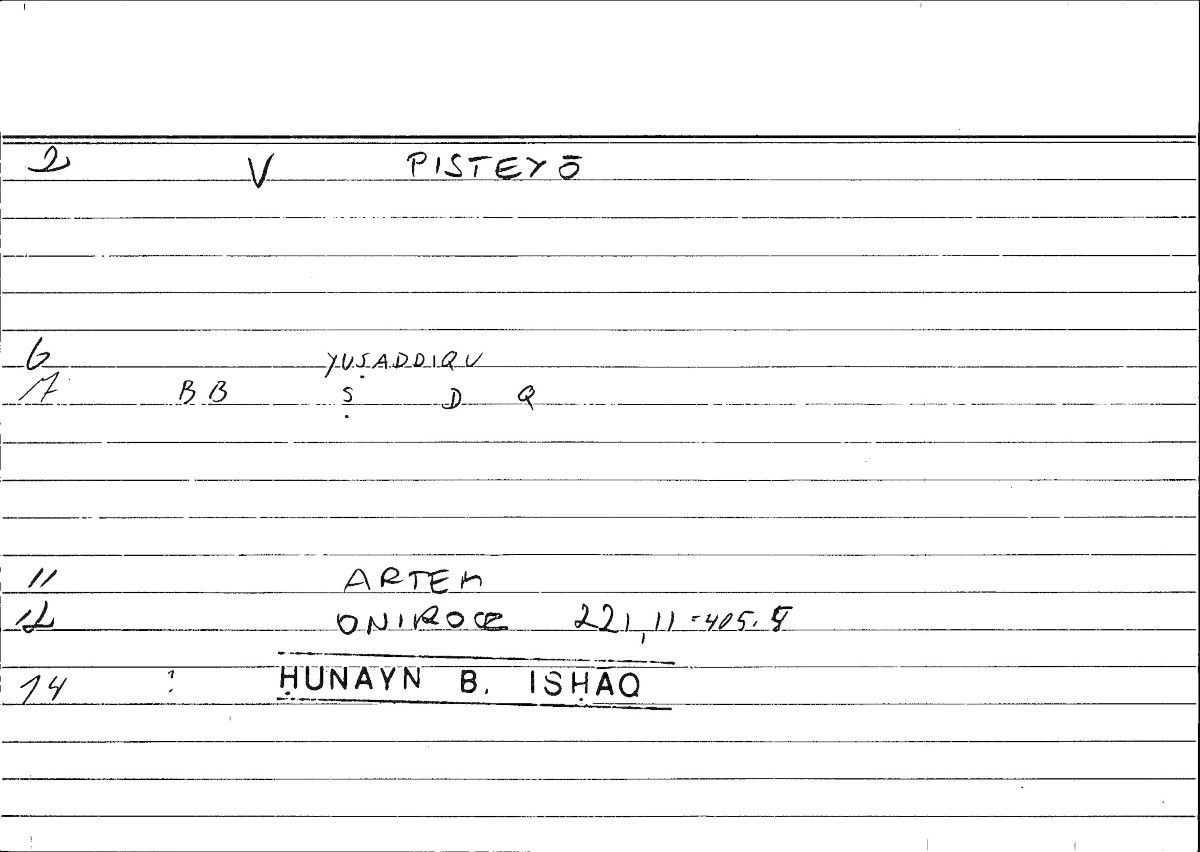 2 V PISTEYŌ
6 YUṢADDIQU
7 BB Ṣ D Q
11 ARTEM
12 ONIROCR 221,11-405.5
14 ? ḤUNAYN B. ISḤĀQ